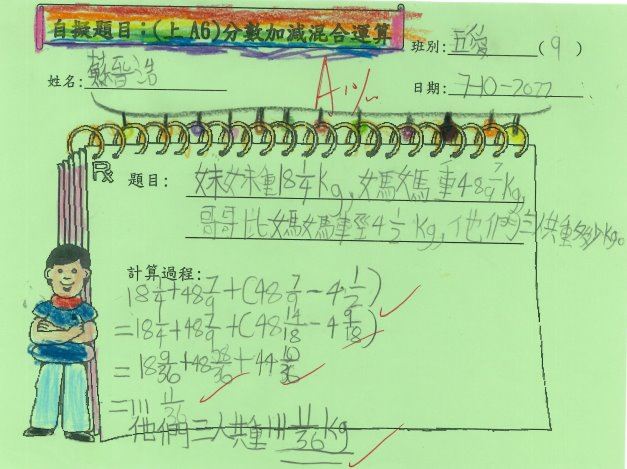 自擬題目：(上 A6)分數加減混合運算
班別: 五愛 (9)
姓名: 蘇晉浩
日期: 7-10-2022
A
題目: 妹妹重18 1/4 Kg, 媽媽重48 7/9 Kg,
哥哥比媽媽輕4 1/2 Kg, 他們三人共重多少Kg。
計算過程:
18 1/4 + 48 7/9 + (48 7/9 - 4 1/2)
= 18 1/4 + 48 7/9 + (48 14/18 - 4 9/18)
= 18 9/36 + 48 28/36 + 44 10/36
= 111 11/36
他們三人共重111 11/36 Kg